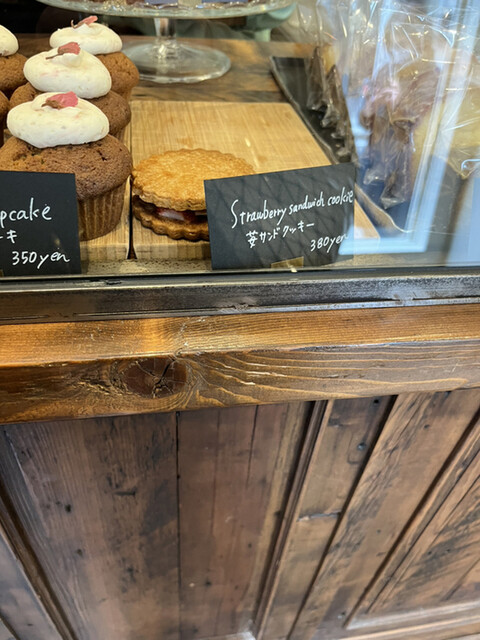 pcake
キ
350yen
Strawberry sandwich cookie
苺サンドクッキー
380yen